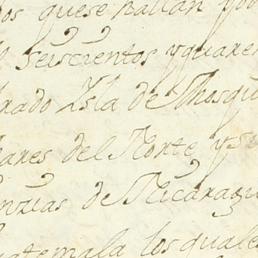 os que se hallan
seiscientos y quaren
rado Isla de Mosqu
ares del Norte y S
de Nicaragu
atemala los quales